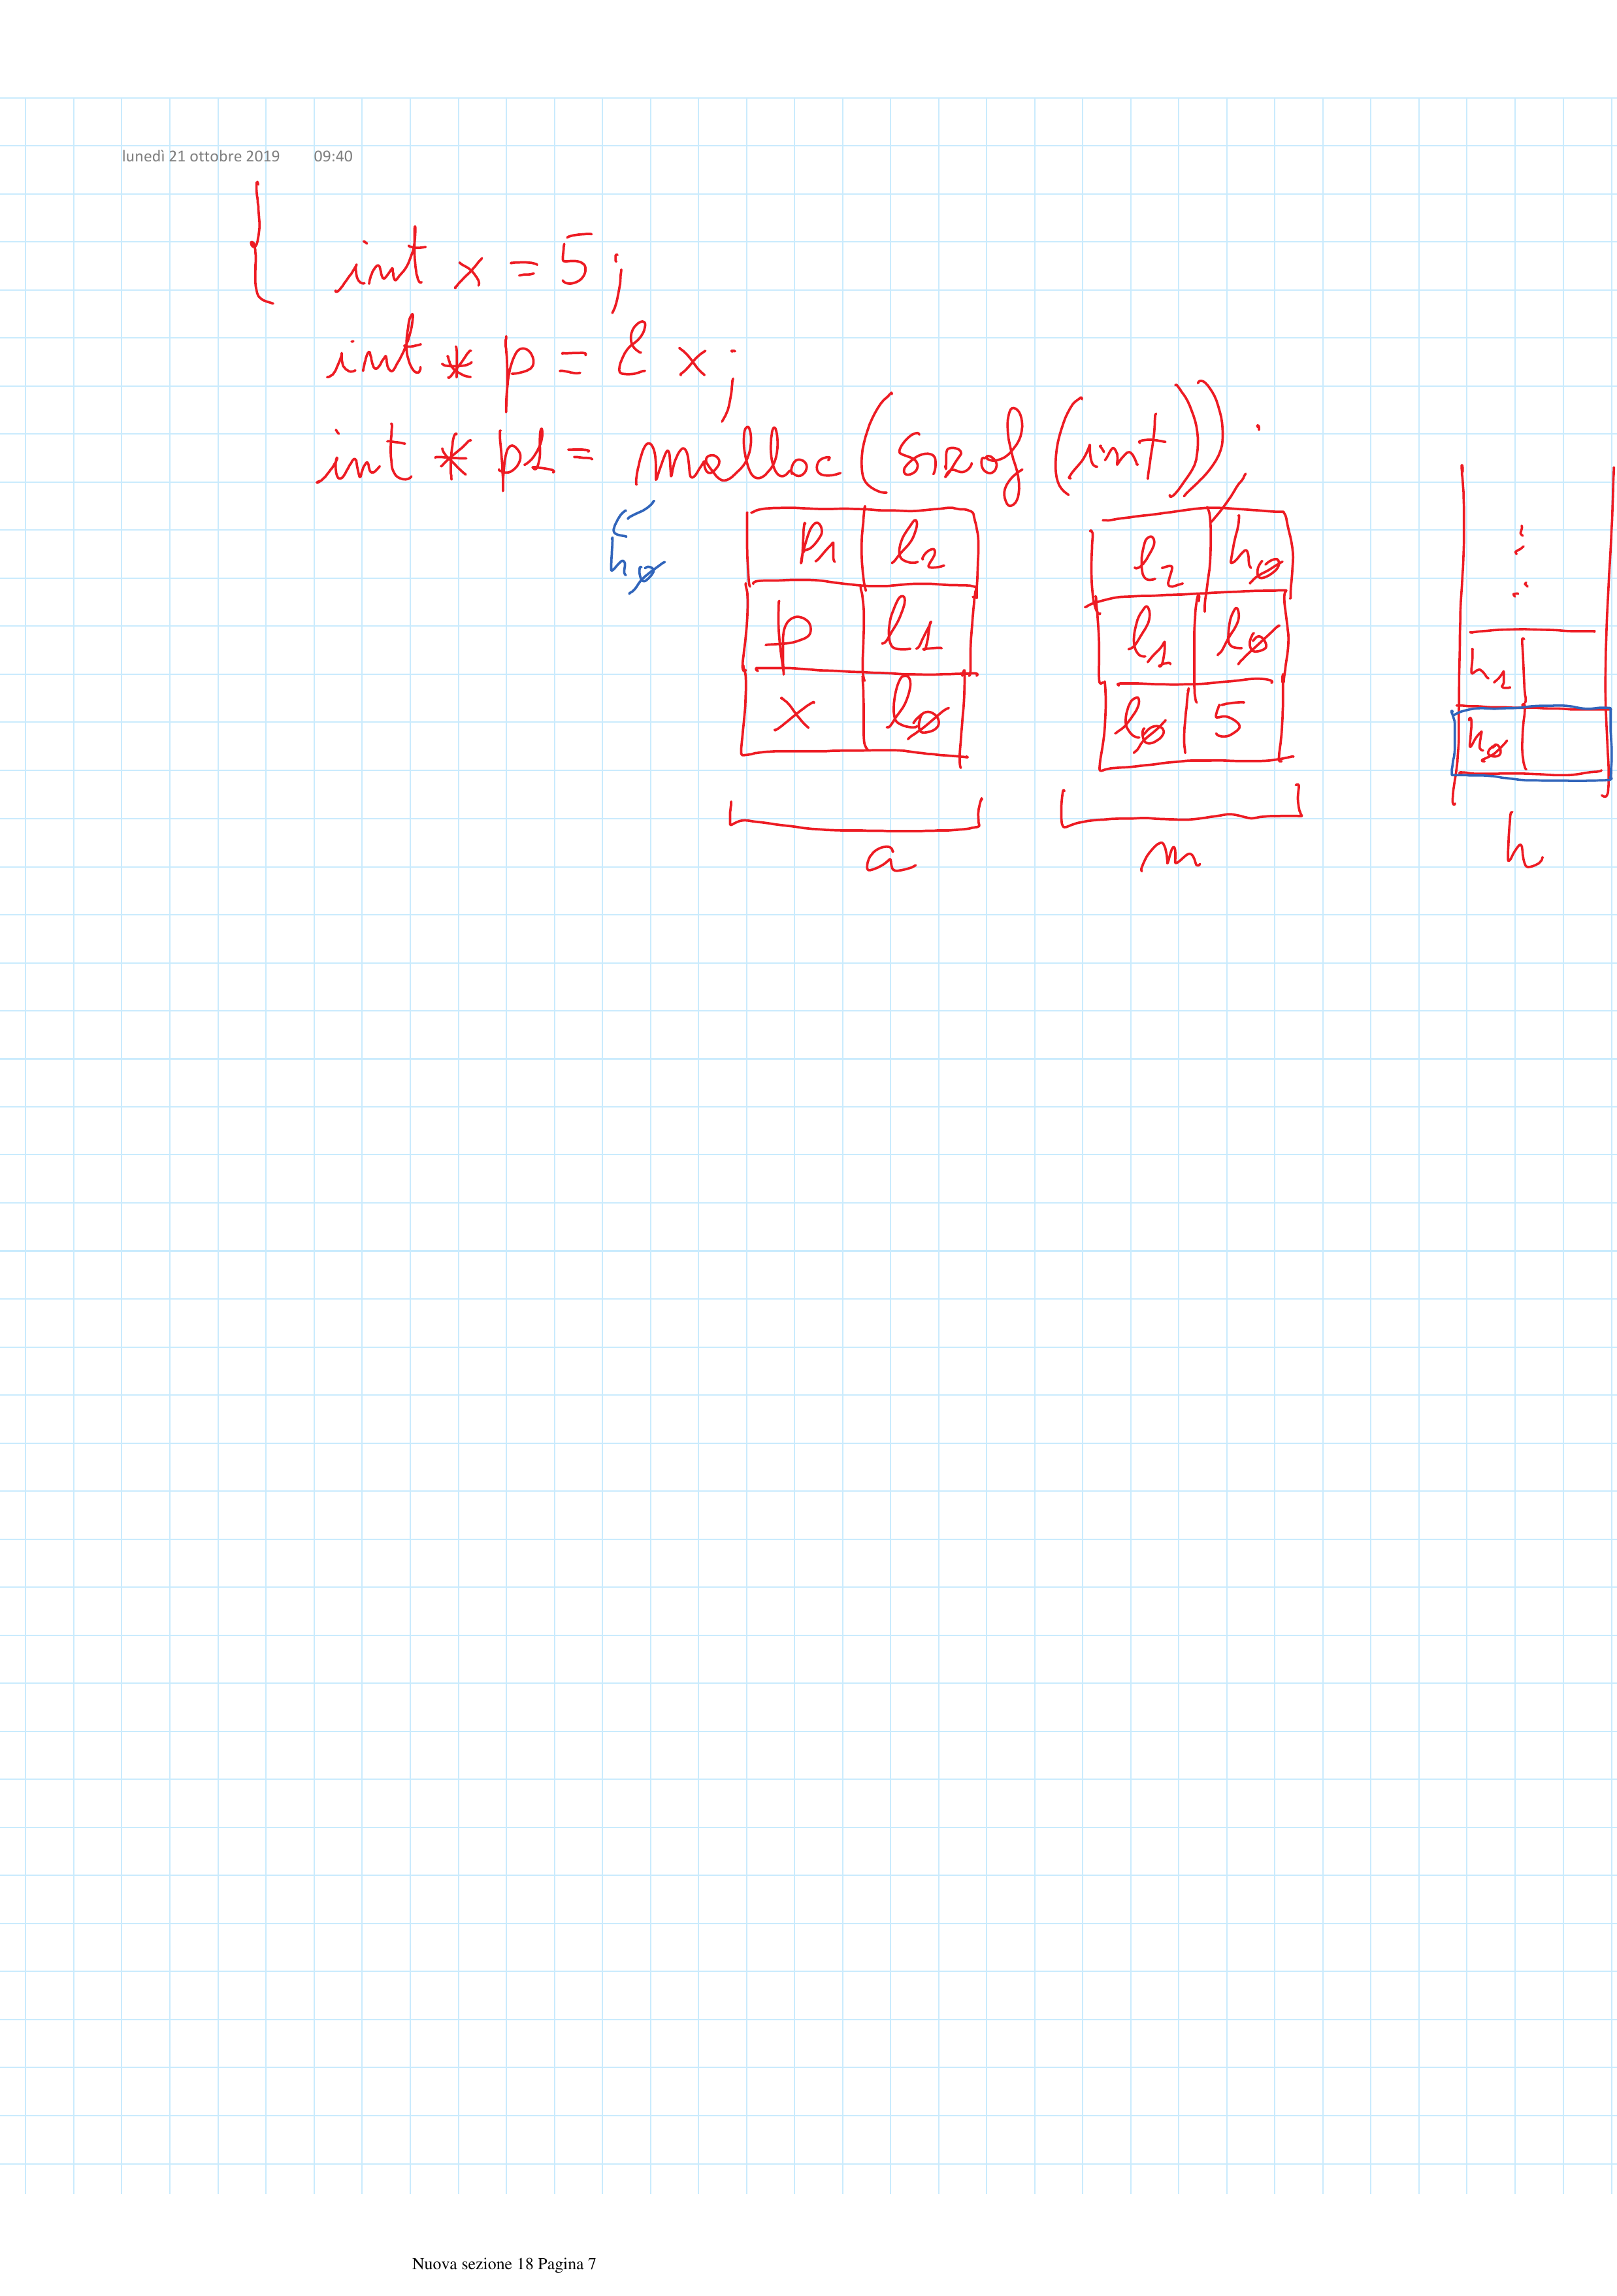 lunedì 21 ottobre 2019 09:40
{ int x = 5;
int * p = & x;
int * p1 = malloc (sizeof (int));
h0
p1 l2
l2 h0
p l1
l1 l0
h1
x l0
l0 5
h0
a m h
Nuova sezione 18 Pagina 7